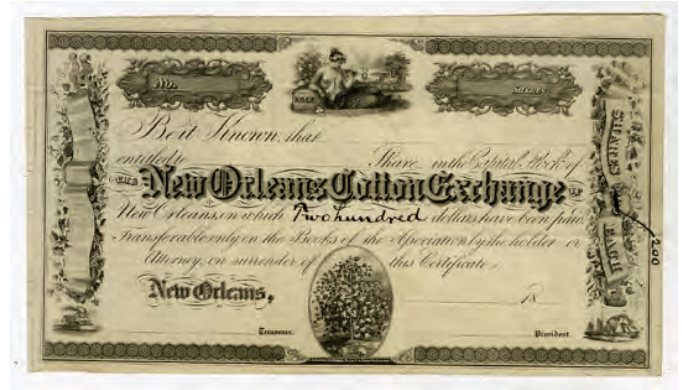 No.
SHARES
N.O.C.E.
Be it Known, that
entitled to Share in the Capital Stock of
THE New Orleans Cotton Exchange OF
New Orleans, on which Two hundred dollars have been paid
Transferable only on the Books of the Association by the holder or
Attorney, on surrender of this Certificate.
New Orleans, 18
Treasurer. President.
SHARES
EACH
200